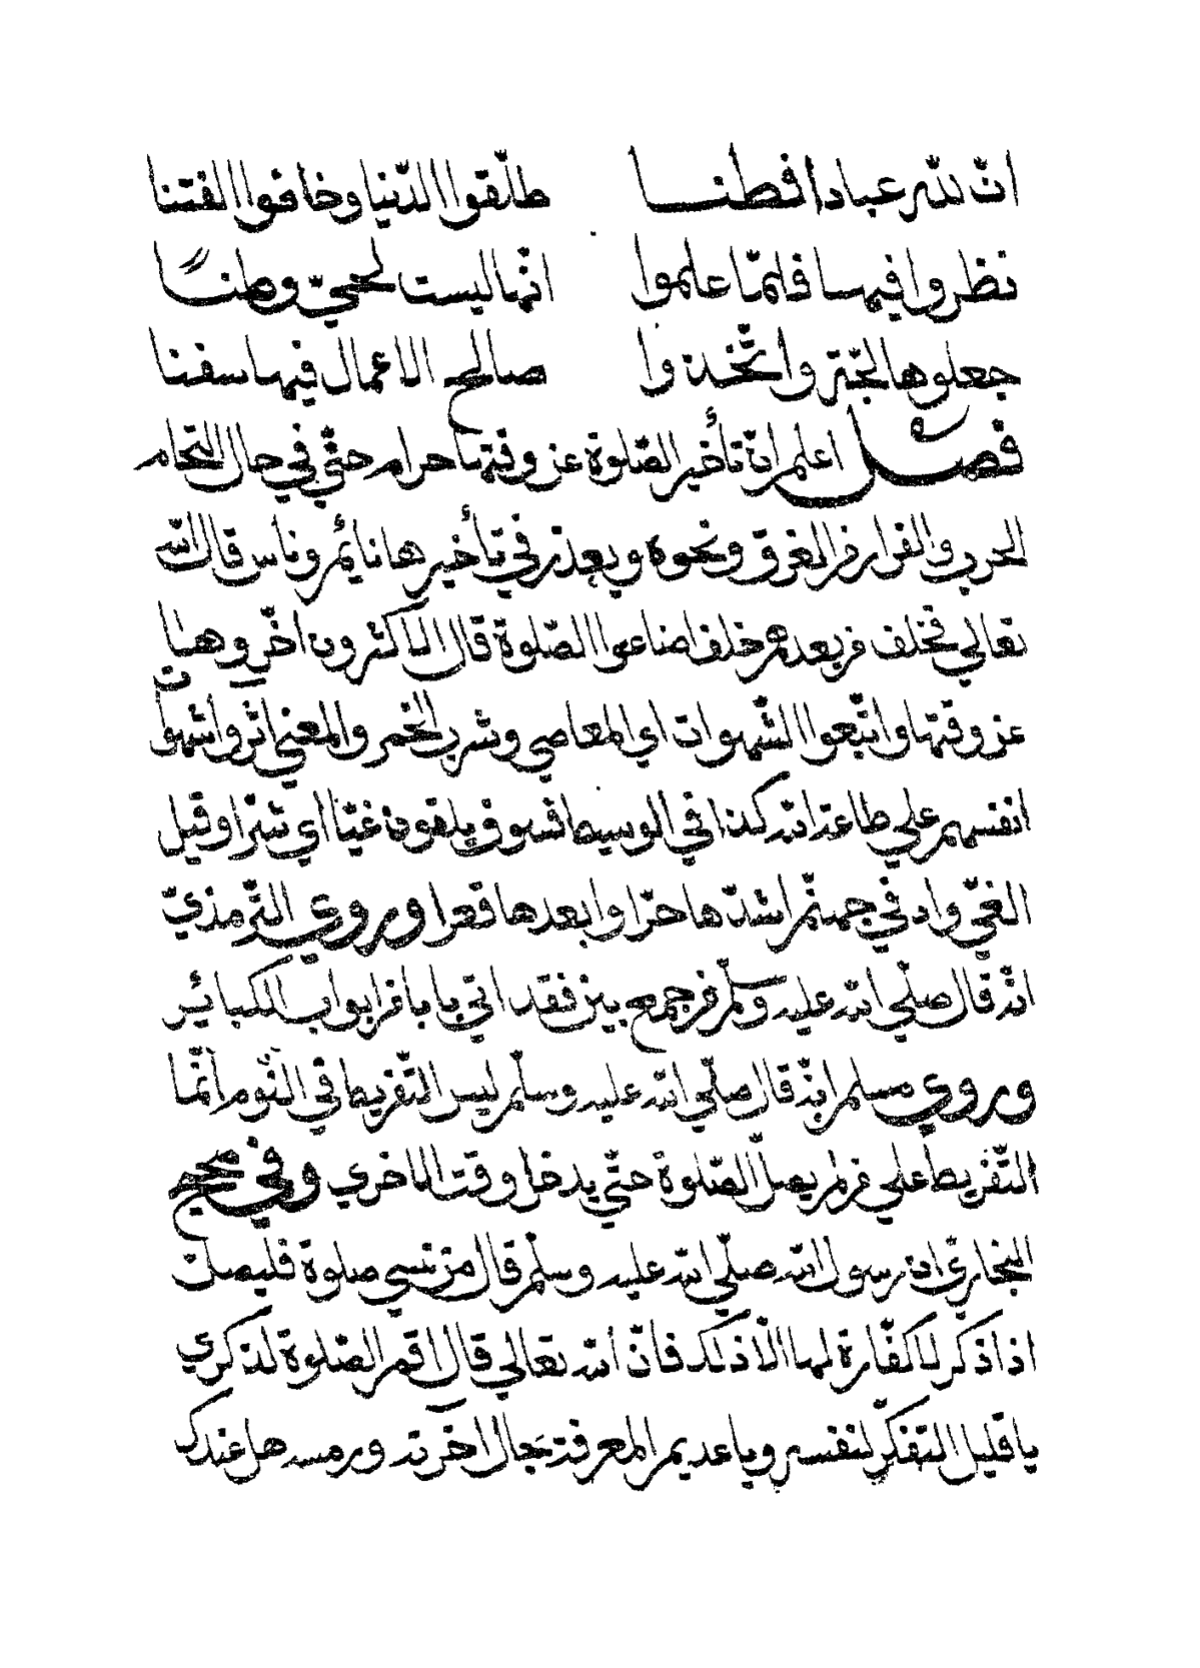 انّ لله عبادا فطنا طلّقوا الدّنيا وخافوا الفتنا
نظروا فيها فلمّا علموا انّها ليست لحيّ وطنًا
جعلوها لجّة واتّخذوا صالح الاعمال فيها سفنا
فصل اعلم انّ تأخير الصّلوة عن وقتها حرام حتّي في حال التحام
الحرب والفرار من الغرق ونحوه ويعذر في تأخيرها نائم وناس قال الله
تعالي فخلف من بعدهم خلف اضاعوا الصّلوة قال الاكثرون اخّروها
عن وقتها واتّبعوا الشّهوات اي المعاصي وشرب الخمر والمعني اثروا شهوات
انفسهم علي طاعة الله كذا في الوسيط فسوف يلقون غيّا اي شرّا وقيل
الغيّ واد في جهنّم اشدّها حرّا وابعدها قعرا وروي التّرمذيّ
انّه قال صلّي الله عليه وسلّم من جمع بين فقد اتي بابا من ابواب الكبائر
وروي مسلم انّه قال صلّي الله عليه وسلّم ليس التّفريط في النّوم انّما
التّفريط علي من لم يصلّ الصّلوة حتّي يدخل وقت الاخري وفي صحيح
البخاريّ انّ رسول الله صلّي الله عليه وسلّم قال من نسي صلوة فليصلّ
اذا ذكر لا كفّارة لها الّا ذلك فانّ الله تعالي قال اقم الصّلوة لذكري
يا قليل التفكّر لنفسه ويا عديم المعرفة بحال آخرته ورمسه هل عندك